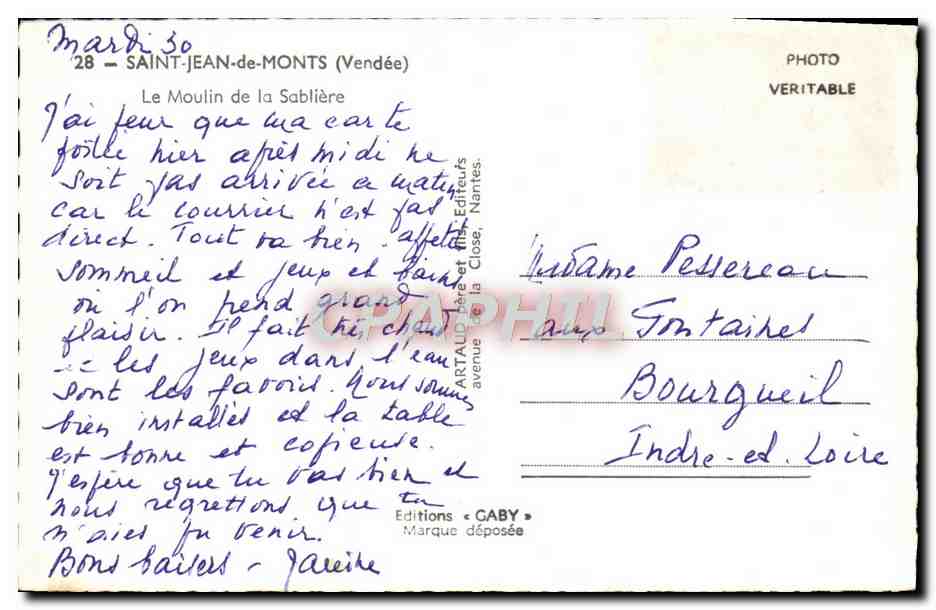 Mardi 30
28 – SAINT-JEAN-de-MONTS (Vendée)
Le Moulin de la Sablière
J'ai peur que ma carte
postée hier après midi ne
soit pas arrivée ce matin
car le courrier n'est pas
direct. Tout va bien. appétit
sommeil et jeux et bains
où l'on prend grand
plaisir. Il fait très chaud
et les jeux dans l'eau
sont les favoris. Nous sommes
bien installés et la table
est bonne et copieuse.
J'espère que tu vas bien et
nous regrettons que tu
n'aies pu venir.
Bons baisers –
ARTAUD père et fils, Editeurs
avenue de la Close, Nantes.
Editions « GABY »
Marque déposée
PHOTO
VERITABLE
Madame Pessereau
aux Fontaines
Bourgueil
Indre-et-Loire
CPAPHIL